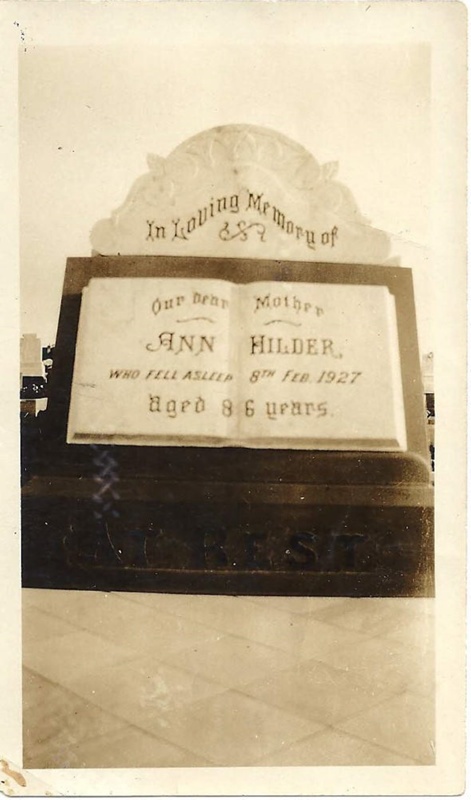 In Loving Memory of
Our dear Mother
ANN HILDER,
WHO FELL ASLEEP 8TH FEB. 1927
aged 86 years.
AT REST